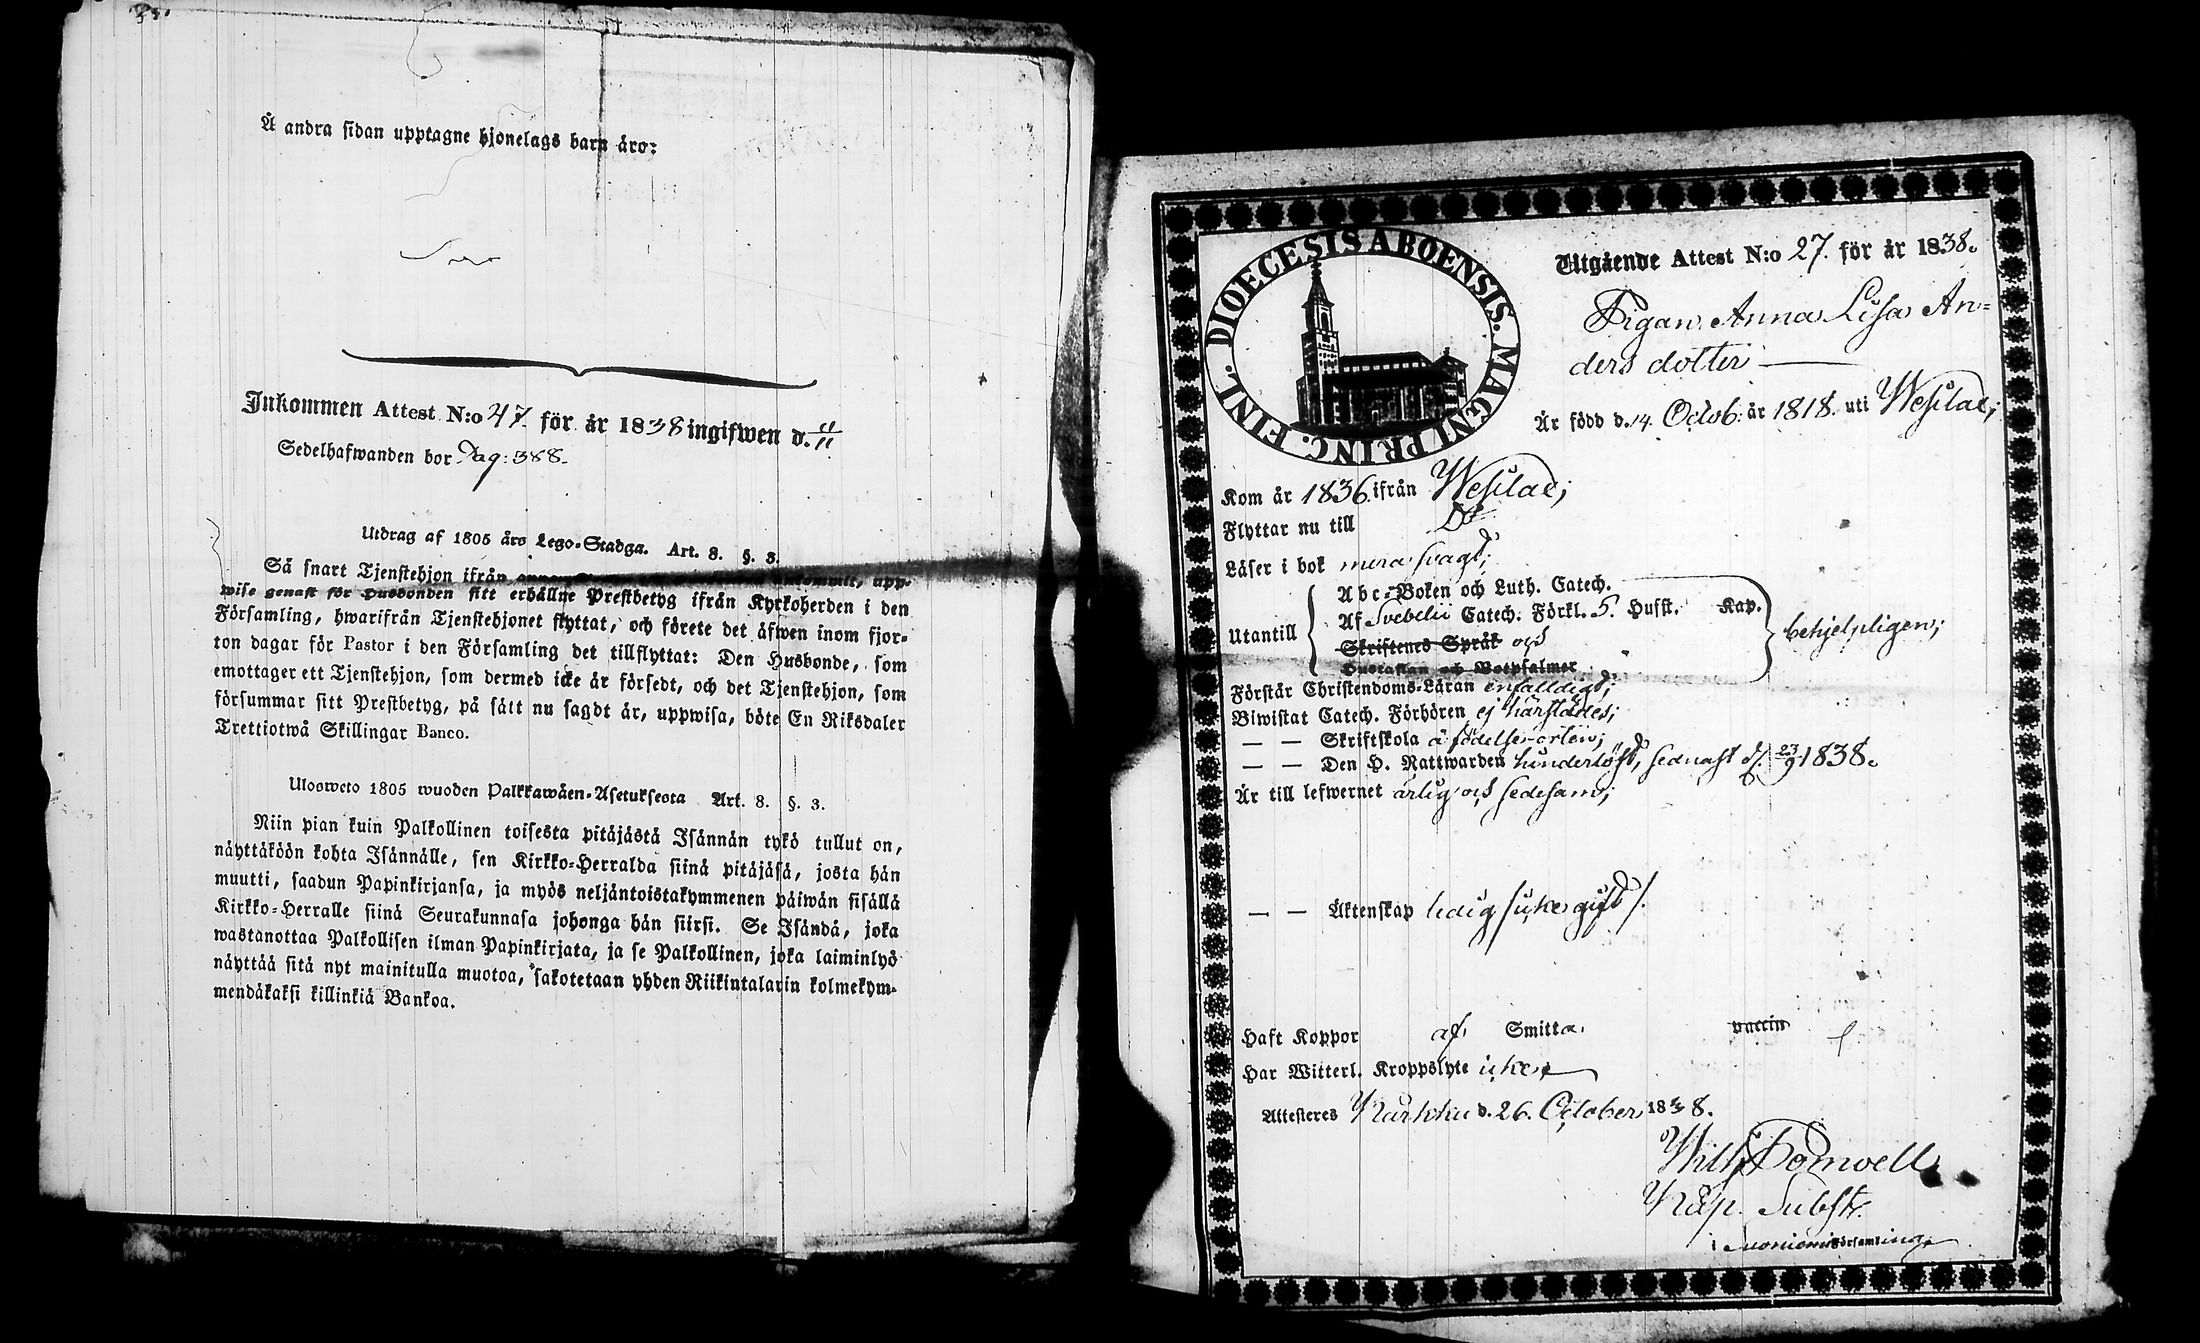 Å andra sidan upptagne hjonelags barn äro:
Inkommen Attest N:o 47. för år 1838 ingifwen d. 11/11
Sedelhafwanden bor Pag: 388.
Utdrag af 1805 års Lego-Stadga. Art. 8. §. 3.
Så snart Tjenstehjon ifrån upp-
wise genast för Husbonden sitt erhållne Prestbetyg ifrån Kyrkoherden i den
Församling, hwarifrån Tjenstehjonet flyttat, och förete det äfwen inom fjor-
ton dagar för Pastor i den Församling det tillflyttat: Den Husbonde, som
emottager ett Tjenstehjon, som dermed icke är försedt, och det Tjenstehjon, som
försummar sitt Prestbetyg, på sätt nu sagdt är, uppwisa, böte En Riksdaler
Trettiotwå Skillingar Banco.
Ulosweto 1805 wuoden Palkkawäen-Asetuksesta Art. 8. §. 3.
Niin pian kuin Palkollinen toisesta pitäjästä Isännän tykö tullut on,
näyttäköön kohta Isännälle, sen Kirkko-Herralda siinä pitäjäsä, josta hän
muutti, saadun Papinkirjansa, ja myös neljäntoistakymmenen päiwän sisällä
Kirkko-Herralle siinä Seurakunnasa johonga hän siirsi. Se Isändä, joka
wastanottaa Palkollisen ilman Papinkirjata, ja se Palkollinen, joka laiminlyö
näyttää sitä nyt mainitulla muotoa, sakotetaan yhden Riikintalarin kolmekym-
mendäkaksi killinkiä Bankoa.
DIOECESIS ABOENSIS. MAGNI PRINC. FINL.
Utgående Attest N:o 27. för år 1838.
Pigan Anna Lisa An-
ders dotter
Är född d. 14. Octob. år 1818. uti Wesilax;
Kom år 1836 ifrån Wesilax;
Flyttar nu till Do
Läser i bok mera svagt;
Abc-Boken och Luth. Catech.
Utantill Af Svebelii Catech. Förkl. 5. Hufst. Kap. behjelpligen;
Skriftenes Språk och
Hustaflan och Botpsalmer
Förstår Christendoms-Läran enfalldigt;
Biwistat Catech. Förhören ej härstädes;
— — Skriftskola å födelse-orten;
— — Den H. Nattwarden hinderlöst, sednast d. 23/9 1838.
Är till lefwernet ärlig och sedesam;
— — Äktenskap ledig /icke gift/.
Haft Koppor af Smitta. vaccin
Har Witterl. Kroppslyte icke
Attesteres Karkku d. 26. October 1838.
Kap. Subst.
i Suoniemi Församling